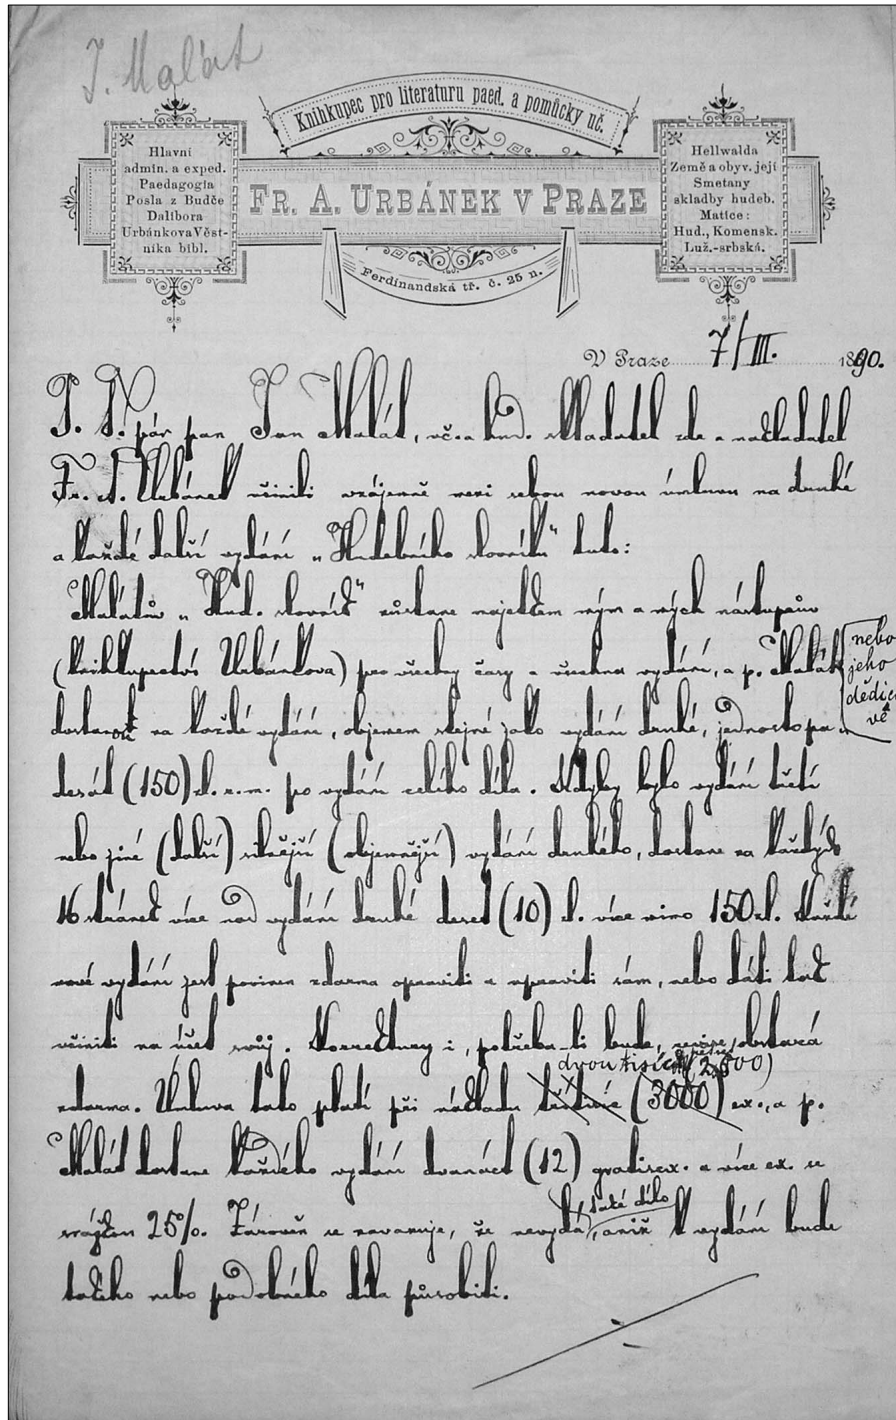 J. Malát
Knihkupec pro literaturu paed. a pomůcky uč.
Hlavní
admin. a exped.
Paedagogia
Posla z Budče
Dalibora
Urbánkova Věst-
níka bibl.
FR. A. URBÁNEK V PRAZE
Hellwalda
Země a obyv. její
Smetany
skladby hudeb.
Matice:
Hud., Komensk.
Luž.-srbská.
Ferdinandská tř. č. 25 n.
V Praze 7/III. 1890.
P. T. pán pan Jan Malát, uč. a hud. skladatel zde a nakladatel
Fr. A. Urbánek učinili vzájemně mezi sebou novou úmluvu na druhé
a každé další vydání „Hudebního slovníku" tuto:
Malátův „Hud. slovník" zůstane majetkem mým a mých nástupcův
(knihkupectví Urbánkova) pro všechny časy a všechna vydání, a p. Malát
nebo
jeho
dědic
vé
dostane za každé vydání, objemem stejné jako vydání druhé, jednostopa
desát (150) zl. r.m. po vydání celého díla. Kdyby bylo vydání třetí
nebo jiné (další) silnější (objemnější) vydání druhého, dostane za každých
16 stránek více nad vydání druhé deset (10) zl. více mimo 150 zl. Každé
nové vydání jest povinen zdarma opraviti a upraviti sám, nebo dáti tak
učiniti na účet svůj. Korrektury i, potřeba-li bude, revise, obstará
dvoutisíc (2,500)
zdarma. Úmluva tato platí při nákladu třitisíc (3000) ex., a p.
Malát dostane každého vydání dvanáct (12) gratisex. a více ex. se
srážkou 25%. Zároveň se zavazuje, že nevydá, aniž k vydání bude
také dílo
takého nebo podobného díla působiti.